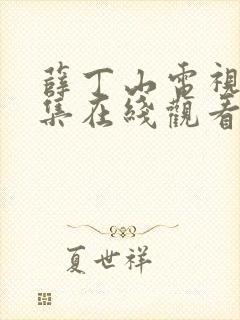 薛丁山電視
集在綫觀看
夏世祥